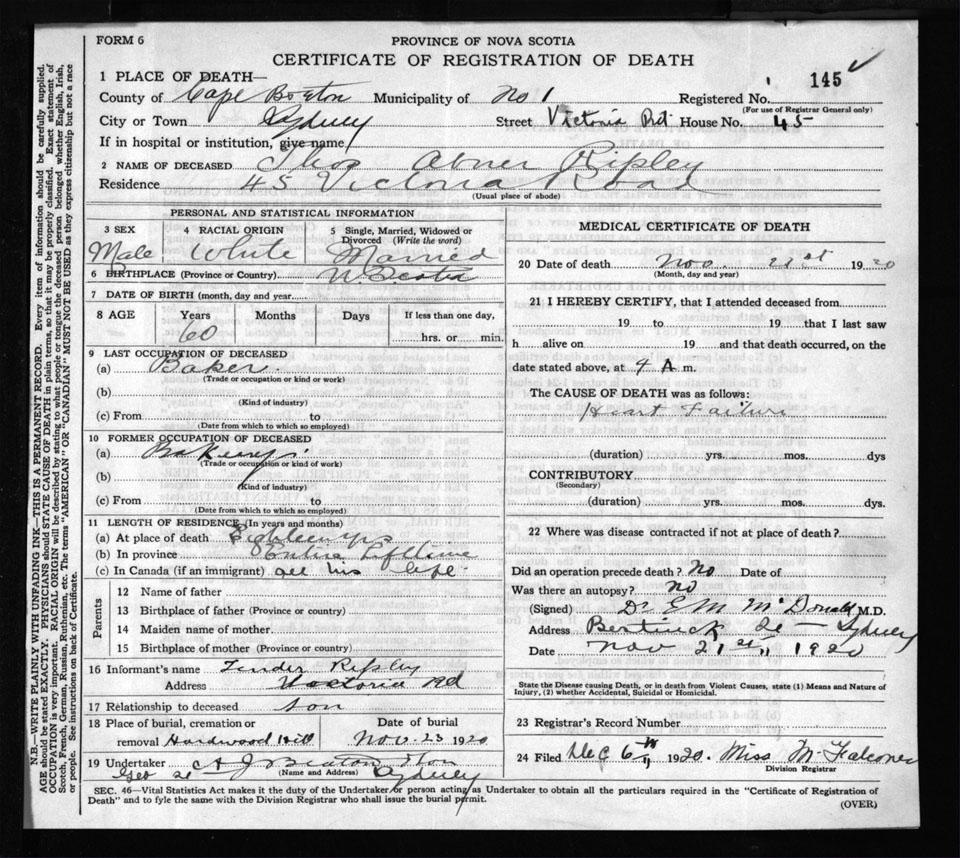 FORM 6
PROVINCE OF NOVA SCOTIA
CERTIFICATE OF REGISTRATION OF DEATH
145
1 PLACE OF DEATH—
County of Cape Breton Municipality of No 1 Registered No.
(For use of Registrar General only)
City or Town Sydney Street Victoria Rd. House No. 45
If in hospital or institution, give name
2 NAME OF DECEASED Thos Abner Ripley
Residence 45 Victoria Road
(Usual place of abode)
PERSONAL AND STATISTICAL INFORMATION
3 SEX 4 RACIAL ORIGIN 5 Single, Married, Widowed or Divorced (Write the word)
Male White Married
6 BIRTHPLACE (Province or Country) N. Scotia
7 DATE OF BIRTH (month, day and year
8 AGE Years Months Days If less than one day,
60 hrs. or min.
9 LAST OCCUPATION OF DECEASED
(a) Baker
(Trade or occupation or kind or work)
(b)
(Kind of industry)
(c) From to
(Date from which to which so employed)
10 FORMER OCCUPATION OF DECEASED
(a)
(Trade or occupation or kind or work)
(b)
(Kind of industry)
(c) From to
(Date from which to which so employed)
11 LENGTH OF RESIDENCE (In years and months)
(a) At place of death Eighteen yrs
(b) In province Entire Lifetime
(c) In Canada (if an immigrant) all his life
Parents
12 Name of father
13 Birthplace of father (Province or country)
14 Maiden name of mother
15 Birthplace of mother (Province or country)
16 Informant's name Ripley
Address Victoria Rd
17 Relationship to deceased son
18 Place of burial, cremation or removal Hardwood Hill
Date of burial Nov. 23 1920
19 Undertaker A J Beaton & Son
(Name and Address)
Geo St Sydney
MEDICAL CERTIFICATE OF DEATH
20 Date of death Nov. 21st 1920
(Month, day and year)
21 I HEREBY CERTIFY, that I attended deceased from
19 to 19 that I last saw
h alive on 19 and that death occurred, on the
date stated above, at 9 A m.
The CAUSE OF DEATH was as follows:
Heart Failure
(duration) yrs. mos. dys
CONTRIBUTORY
(Secondary)
(duration) yrs. mos. dys.
22 Where was disease contracted if not at place of death?
Did an operation precede death? No Date of
Was there an autopsy? no
(Signed) Dr E M McDonald M.D.
Address St — Sydney
Date Nov 21st 1920
State the Disease causing Death, or in death from Violent Causes, state (1) Means and Nature of Injury, (2) whether Accidental, Suicidal or Homicidal.
23 Registrar's Record Number
24 Filed Dec 6th 1920. Miss M Falconer
Division Registrar
SEC. 46—Vital Statistics Act makes it the duty of the Undertaker or person acting as Undertaker to obtain all the particulars required in the "Certificate of Registration of
Death" and to fyle the same with the Division Registrar who shall issue the burial permit.
(OVER)
N.B.—WRITE PLAINLY WITH UNFADING INK—THIS IS A PERMANENT RECORD. Every item of information should be carefully supplied.
AGE should be stated EXACTLY. PHYSICIANS should STATE CAUSE OF DEATH in plain terms, so that it may be properly classified. Exact statement of
OCCUPATION is very important. RACIAL ORIGIN will be described by stating to what people or tongue the deceased person belonged, whether English, Irish,
Scotch, French, German, Russian, Ruthenian, etc. The terms "AMERICAN" OR "CANADIAN" MUST NOT BE USED as they express citizenship but not a race
or people. See instructions on back of Certificate.